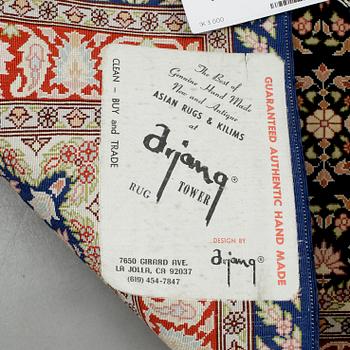 K 3 000
The Best of
Genuine Hand Made
New and Antique
ASIAN RUGS & KILIMS
at
arjang®
RUG TOWER
DESIGN BY
arjang®
7650 GIRARD AVE.
LA JOLLA, CA 92037
(619) 454-7847
CLEAN - BUY and TRADE
GUARANTEED AUTHENTIC HAND MADE